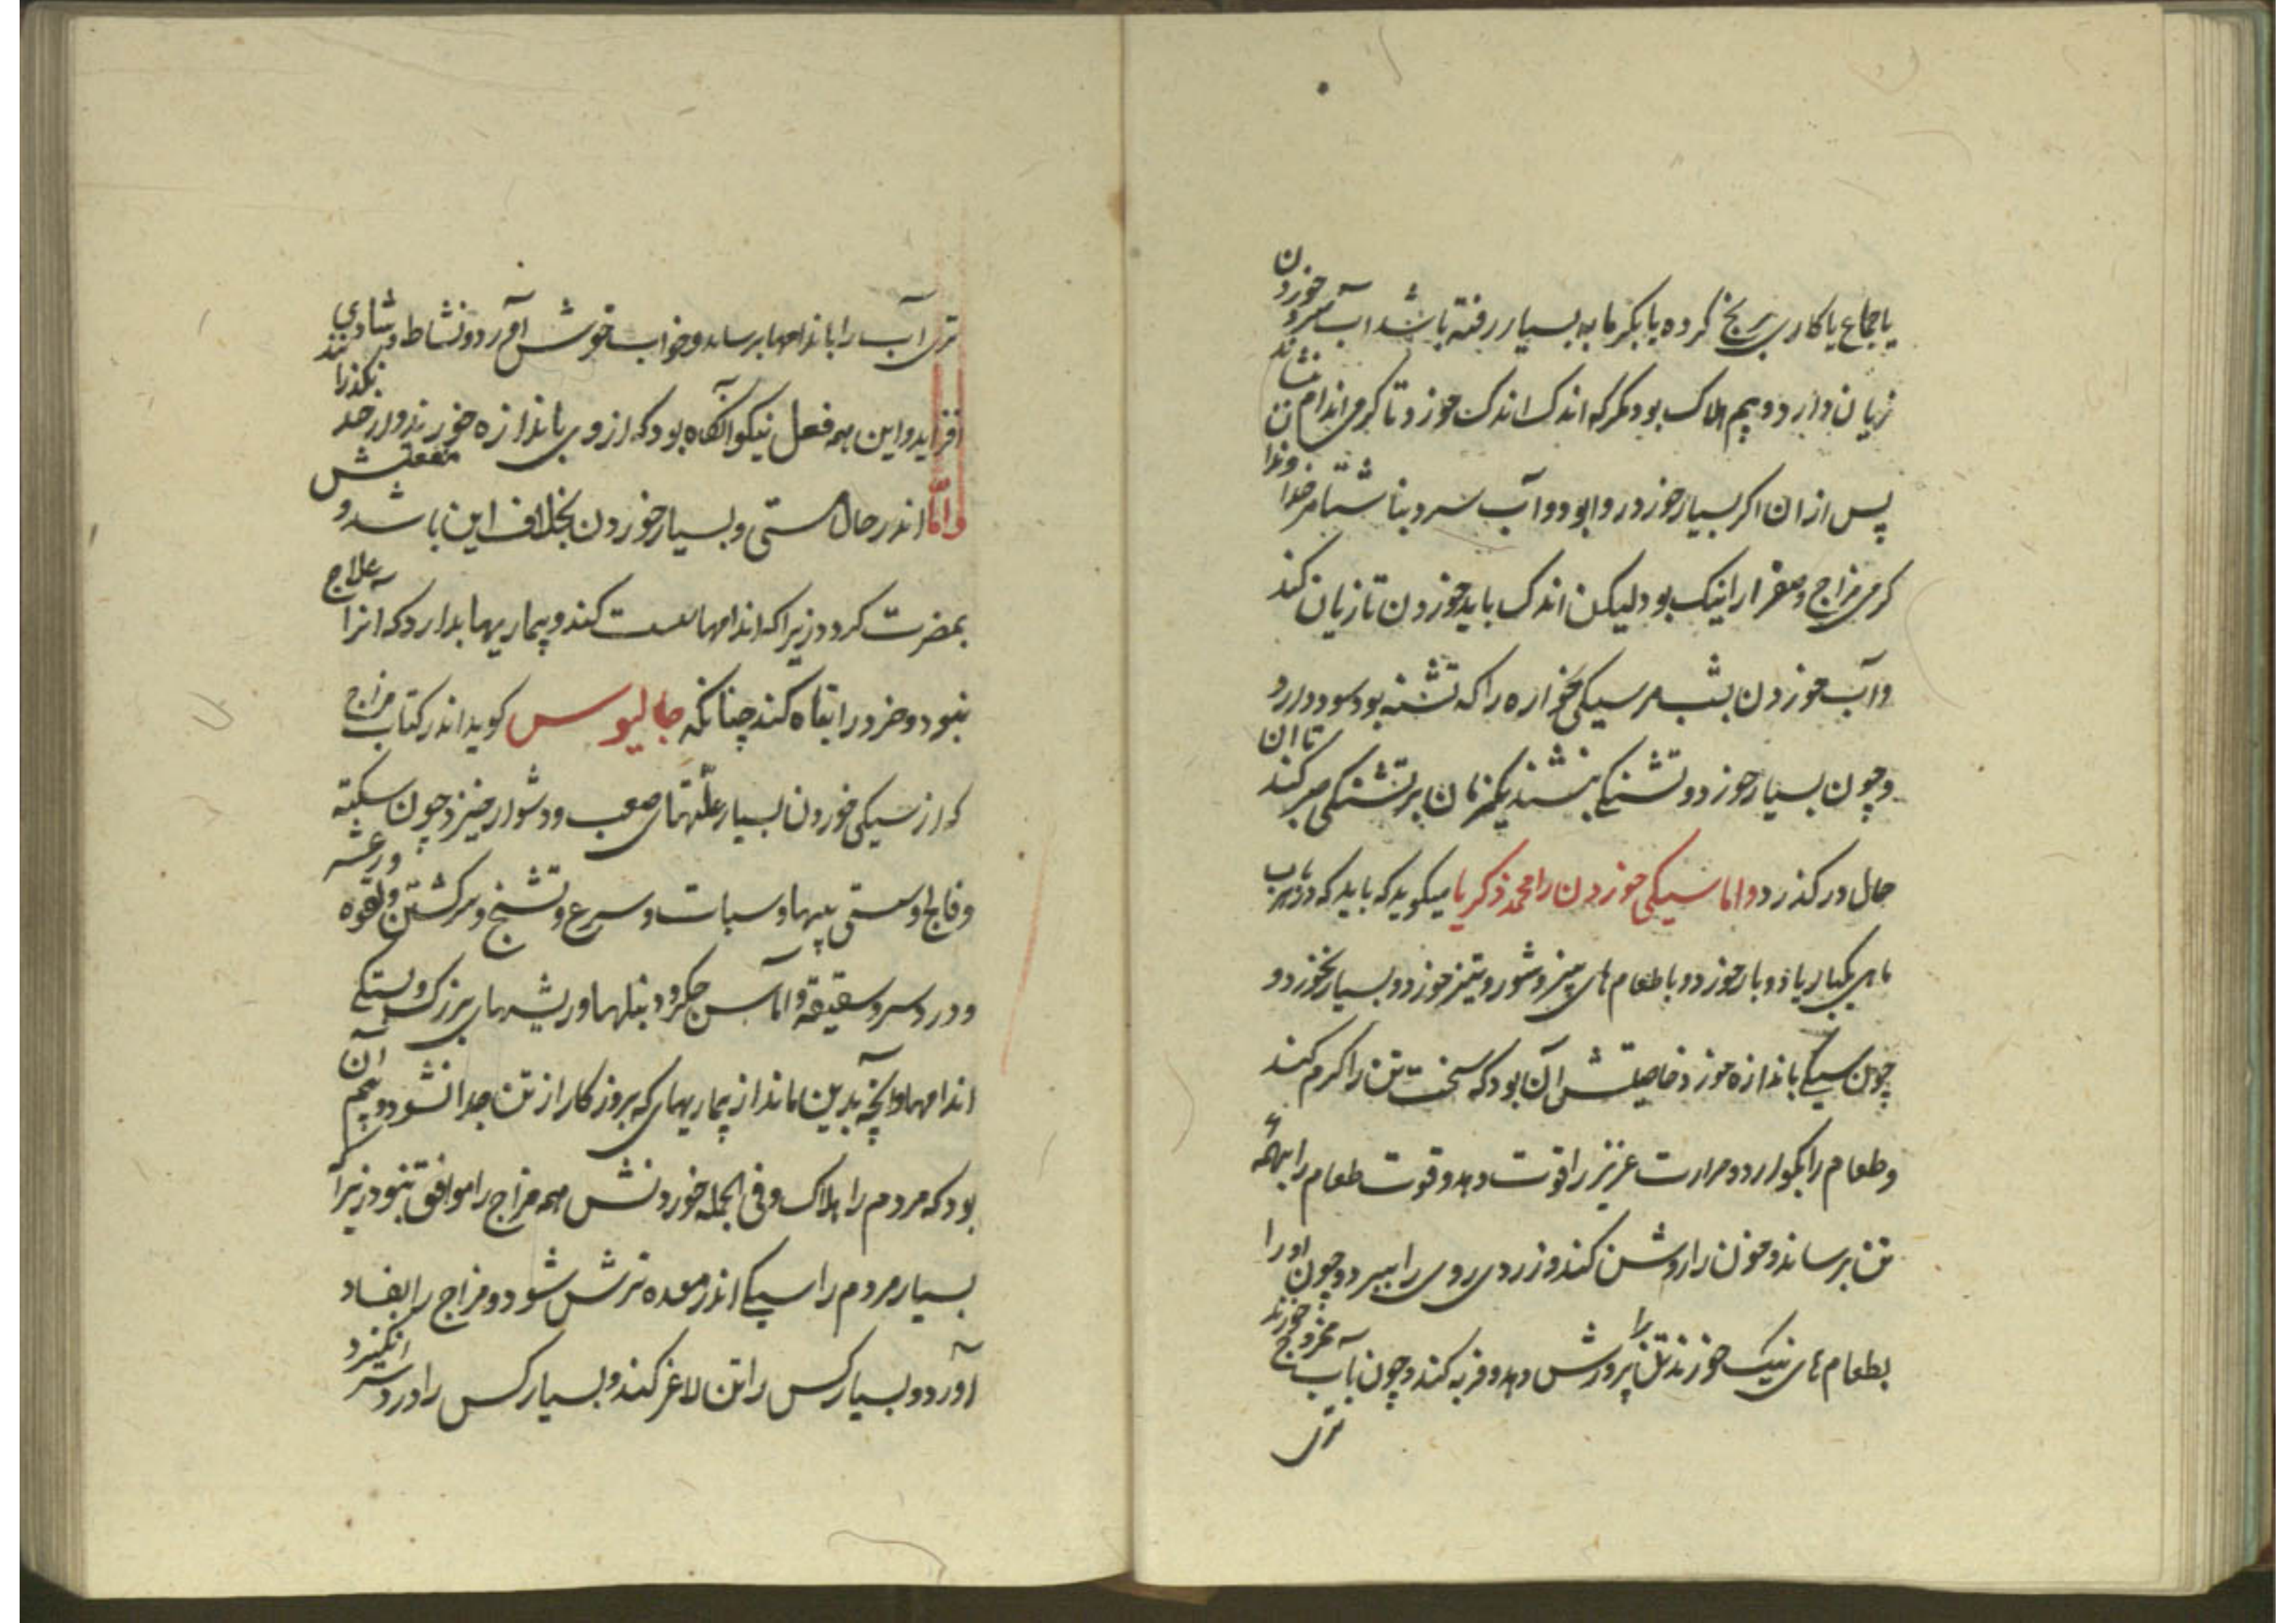 یا جماع یا کاری برنج کرده یا بکرمابه بسیار رفته باشد آب سرد خوردن
زیان دارد و بیم هلاک بود مکر که اندک اندک خورد تا کرمی اندام بنشاند
پس ازان اکر بسیار خورد روا بود و آب سرد بناشتا مر خداوندان
کرمی مزاج و صفرا را نیک بود لیکن اندک باید خوردن تا زیان نکند
و آب خوردن بشب مر سیکی خواره را که تشنه بود سود دارد و
و چون بسیار خورد و تشنکی ننشند یکزمان بر تشنکی صبر کند تا ان
حال در کذرد و اما سیکی خوردن را محمد زکریا میکوید که باید که در هر
ماهی یکبار یا دو بار خورد و با طعام های چیز و شور و تیز خورد و بسیار نخورد و
چون سیکی باندازه خورد خاصیتش آن بود که سخت تن را کرم کند
و طعام را بکوارد و حرارت عزیز را قوت دهد و قوت طعام را بهمه
تن برساند و خون را روشن کند و زردی روی را ببرد و چون او را
بطعام های نیک خورند تن را پرورش دهد و فربه کند و چون بآب ممزوج خورند
تری
تری آب را باندامها برساند و خواب خوش آورد و نشاط و شادی
افزاید و این همه فعل نیکو آنکاه بود که از وی باندازه خورند و از حد نکذرانند
و اما اندر حال مستی و بسیار خوردن بخلاف این باشد و منفعتش
بمضرت کردد زیرا که اندامها سست کند و بیماریها بدارد که آنرا علاج
نبود و خرد را تباه کند چنانکه جالیوس کوید اندر کتاب مزاج
که از سیکی خوردن بسیار علّتهای صعب و دشوار خیزد چون سکته
و فالج و سستی پیها و سبات و سرع و تشنج و سرکشتن و لقوه و رعشه
و درد سر و سقیقه و آماس جکر و دنبلها و ریشهای بزرک و سستکی
اندامها و آنچه بدین ماند از بیماریهای که بروزکار از تن جدا نشود و بیم آن
بود که مردم را هلاک کند و فی الجمله خوردنش همه مزاج را موافق نبود زیرا
بسیار مردم را سیکی اندر معده ترش شود و مزاج را بفساد
آورد و بسیار کس را تن لاغر کند و بسیار کس را درد سر انکیزد